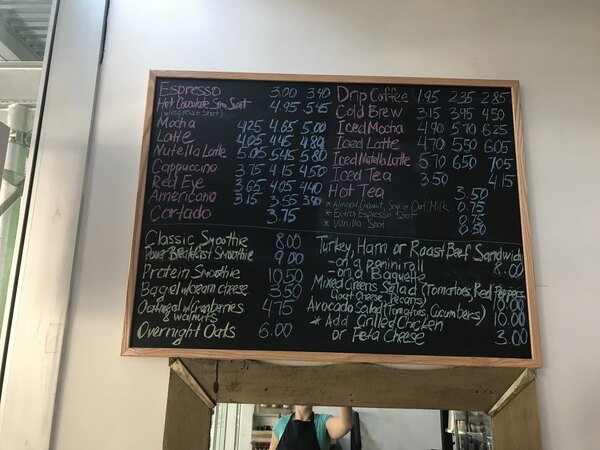 Espresso 3.00 3.40
Hot Chocolate Semi Sweet 4.95 5.45
(w/ espresso shot)
Mocha 4.25 4.65 5.00
Latte 4.05 4.45 4.80
Nutella Latte 5.05 5.45 5.80
Cappuccino 3.75 4.15 4.50
Red Eye 3.65 4.05 4.40
Americano 3.15 3.55 3.90
Cortado 3.75
Drip Coffee 1.95 2.35 2.85
Cold Brew 3.15 3.95 4.50
Iced Mocha 4.90 5.70 6.25
Iced Latte 4.70 5.50 6.05
Iced Nutella Latte 5.70 6.50 7.05
Iced Tea 3.50 4.15
Hot Tea 3.50
* Almond, Coconut, Soy or Oat Milk 0.75
* Extra Espresso Shot 0.75
* Vanilla Shot 0.50
Classic Smoothie 8.00
Power Breakfast Smoothie 9.00
Protein Smoothie 10.50
Bagel w/cream cheese 3.50
Oatmeal w/Cranberries 4.75
& walnuts
Overnight Oats 6.00
Turkey, Ham or Roast Beef Sandwich
- on a panini roll 8.00
- on a Baguette
Mixed Greens Salad (Tomatoes, Red Peppers
Goat Cheese, Pecans)
Avocado Salad (Tomatoes, Cucumbers) 10.00
* Add Grilled Chicken
or Feta Cheese 3.00